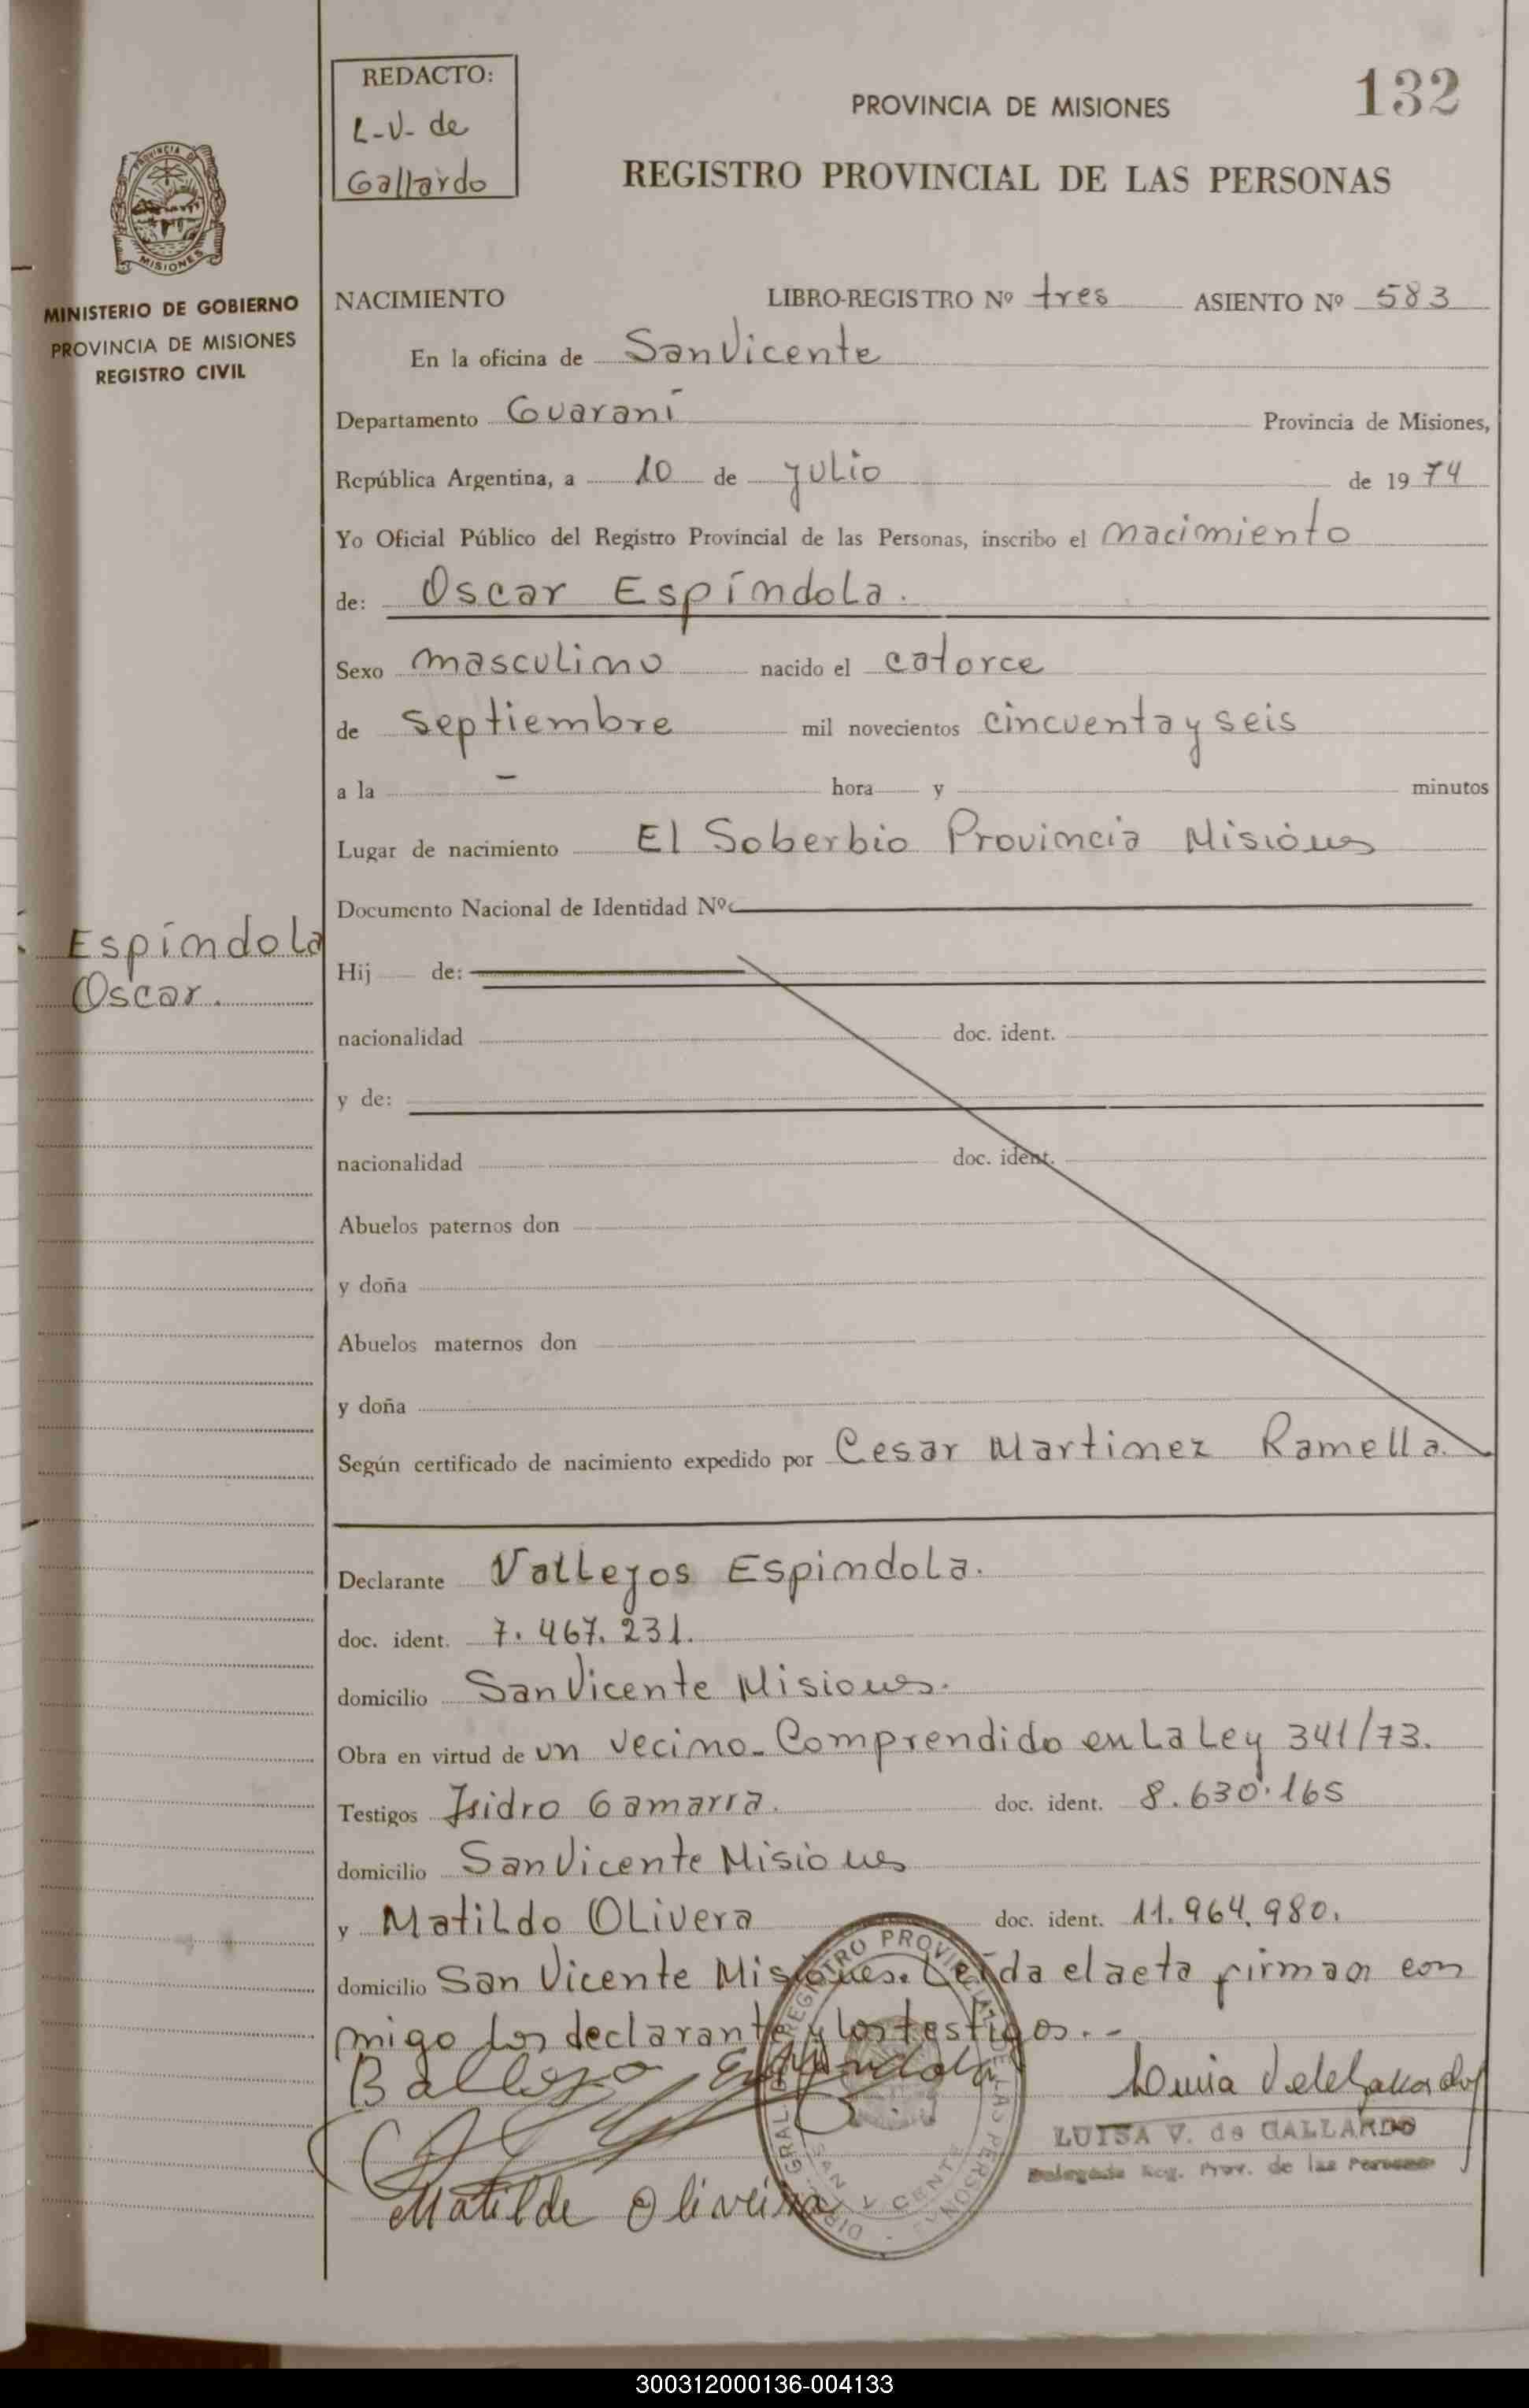 REDACTO:
L-V- de
Gallardo
PROVINCIA DE MISIONES
132
REGISTRO PROVINCIAL DE LAS PERSONAS
PROVINCIA DE
MISIONES
MINISTERIO DE GOBIERNO
PROVINCIA DE MISIONES
REGISTRO CIVIL
NACIMIENTO LIBRO-REGISTRO Nº tres ASIENTO Nº 583
En la oficina de San Vicente
Departamento Guaraní Provincia de Misiones,
República Argentina, a 10 de julio de 1974
Yo Oficial Público del Registro Provincial de las Personas, inscribo el nacimiento
de: Oscar Espíndola.
Sexo masculino nacido el catorce
de septiembre mil novecientos cincuenta y seis
a la - hora y minutos
Lugar de nacimiento El Soberbio Provincia Misiones
Documento Nacional de Identidad Nº
Espíndola
Oscar.
Hij de:
nacionalidad doc. ident.
y de:
nacionalidad doc. ident.
Abuelos paternos don
y doña
Abuelos maternos don
y doña
Según certificado de nacimiento expedido por Cesar Martinez Ramella.
Declarante Vallejos Espindola.
doc. ident. 7.467.231.
domicilio San Vicente Misiones.
Obra en virtud de un vecino- Comprendido en La Ley 341/73.
Testigos Isidro Gamarra. doc. ident. 8.630.165
domicilio San Vicente Misiones
y Matildo Olivera doc. ident. 11.964.980.
domicilio San Vicente Misiones. Leída el acta firman con
migo los declarante y los testigos.-
Ballejo Espindola
Luisa V de Gallardo
LUISA V. de GALLARDO
Delegada Reg. Prov. de las Personas
Matilde Oliveira
DIR. GRAL. DEL REGISTRO PROVINCIAL DE LAS PERSONAS
SAN VICENTE
300312000136-004133